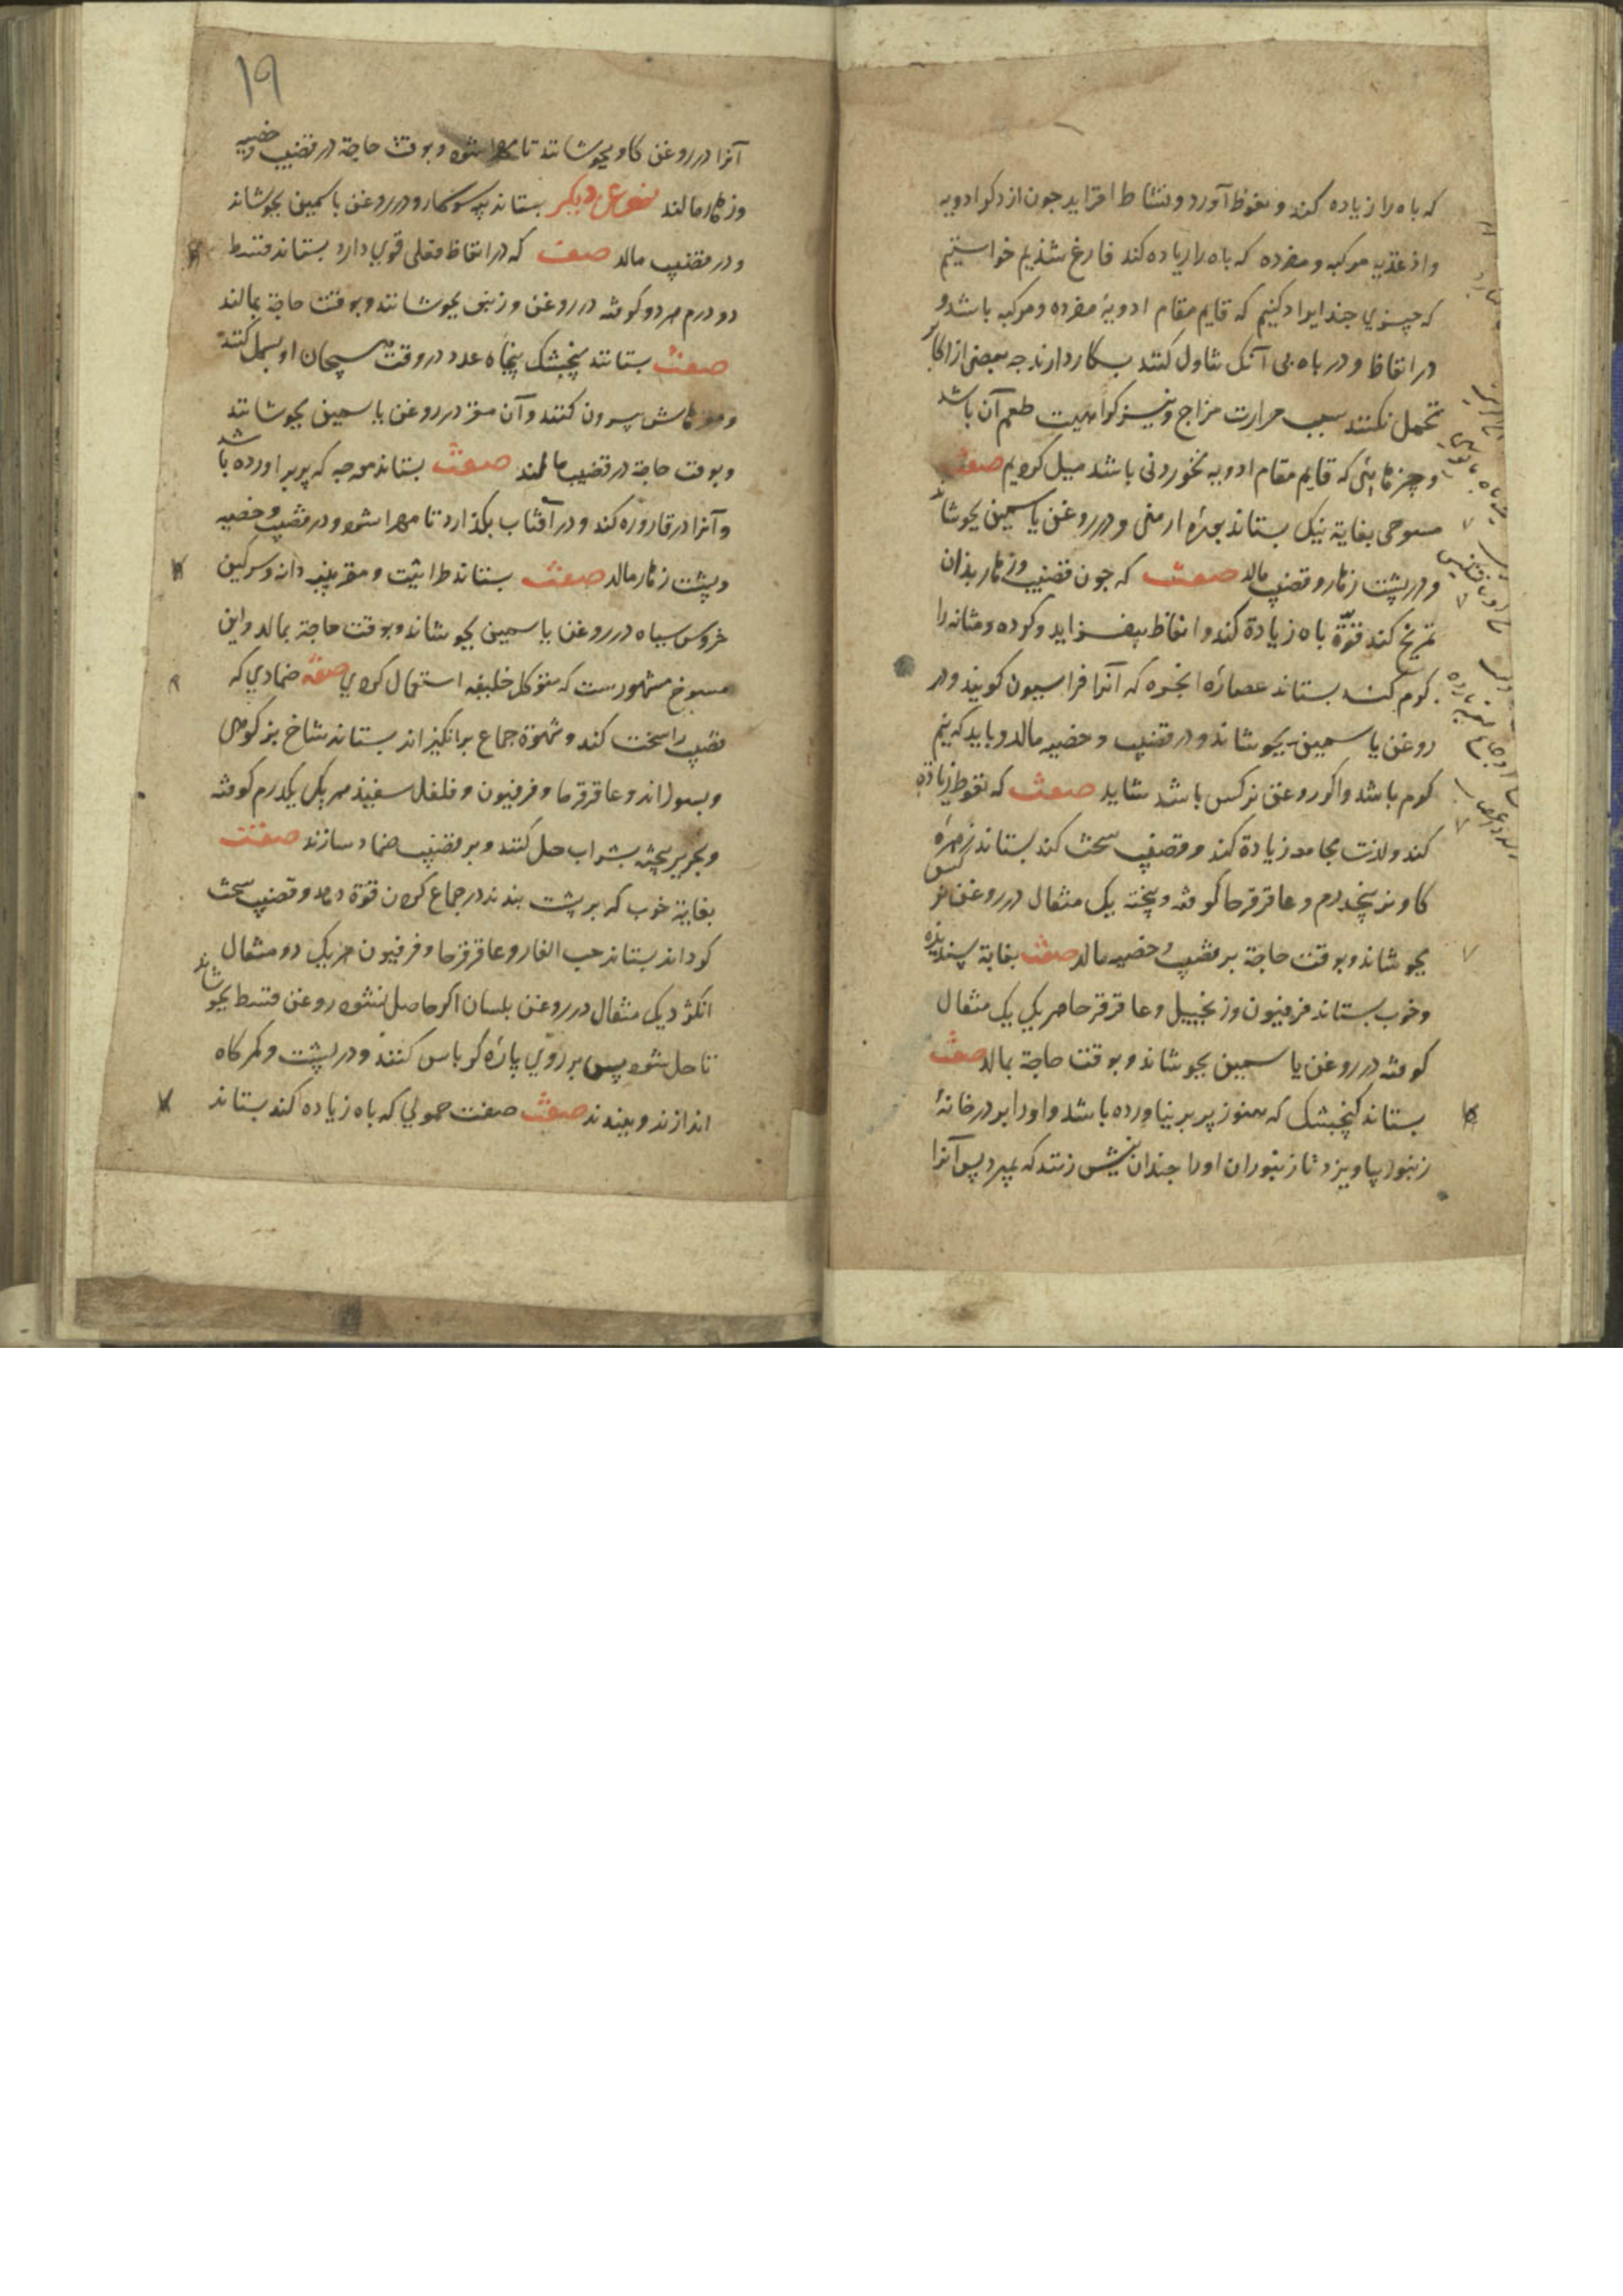 که باه را زیاده کند و نعوظ آورد و نشاط افزاید جون از ذکر ادویه
و اغذیه مرکبه و مفرده که باه را زیاده کند فارغ شذیم خواستیم
که چیزی جند ایراد کنیم که قایم مقام ادویهٔ مفرده و مرکبه باشد و
در انعاظ و در باه بی آنک تناول کنند بکار دارند جه بعضی از اکابر
تحمل نکنند سبب حرارت مزاج و نیز کراهیت طعم آن باشد
و چیزهائی که قایم مقام ادویه خوردنی باشد میل کردیم صفت
مسوحی بغایة نیک بستاند بورهٔ ارمنی و در روغن یاسمین بجوشاند
و در پشت زهار و قضیب مالد صفت که جون قضیب و زهار بذان
تمریخ کند قوّة باه زیادة کند و انعاظ بیفزاید و کرده و مثانه را
کرم کند بستاند عصارهٔ انجره که آنرا فراسیون کویند و در
روغن یاسمین بجوشاند و در قضیب و خصیه مالد و باید که نیم
کرم باشد و اکر روغن نرکس باشد شاید صفت که نعوظ زیادة
کند و لذت مجامعه زیادة کند و قضیب سخت کند بستاند زهرهٔ
کاو نر پنجدرم و عاقرقرحا کوفته و پخته یک مثقال در روغن نرکس
بجوشاند و بوقت حاجة بر قضیب و خصیه مالد صفت بغایة پسندیذه
و خوب بستاند فرفیون و زنجبیل و عاقرقرحا هر یکی یک مثقال
کوفته در روغن یاسمین بجوشاند و بوقت حاجة بمالد صفت
بستاند کنجشک که هنوز پر بر نیاورده باشد و او را بر در خانهٔ
زنبور بیاویزد تا زنبوران او را جندان نیش زنند که بمیرد پس آنرا
۱۹
آنرا در روغن کاو بجوشانند تا مهرا شود و بوقت حاجة در قضیب و خصیه
و زهار مالند نوعی دیکر بستاند پیه سوسمار و در روغن یاسمین بجوشاند
و در قضیب مالد صفت که در انعاظ فعلی قوی دارد بستاند قسط
دو درم هر دو کوفته در روغن و زنبق بجوشانند و بوقت حاجة بمالند
صفت بستانند بنجشک پنجاه عدد در وقت هیجان او بسمل کنند
و مغزهاش بیرون کنند و آن مغز در روغن یاسمین بجوشانند
و بوقت حاجة در قضیب مالند صفت بستاند مورجه که پر بر آورده باشد
و آنرا در قاروره کند و در آفتاب بکذارد تا مهرا شود و در قضیب و خصیه
و پشت زهار مالد صفت بستاند طراثیث و مغز پنبه دانه و سرکین
خروس سیاه در روغن یاسمین بجوشاند و بوقت حاجة بمالد و این
مسوخ مشهورست که متوکل خلیفه استعمال کردی صفة ضمادی که
قضیب را سخت کند و شهوة جماع برانکیزاند بستاند شاخ بز کوهی
و بسوزاند و عاقرقرحا و فرفیون و فلفل سفیذ هر یکی یکدرم کوفته
و بحریر بیخته بشراب حل کنند و بر قضیب ضماد سازند صفت
بغایة خوب که بر پشت بندند در جماع کردن قوّة دهد و قضیب سخت
کرداند بستاند حب الغار و عاقرقرحا و فرفیون هر یکی دو مثقال
انکژد یک مثقال در روغن بلسان اکر حاصل نشود روغن قسط بجوشاند
تا حل شود پس بر روی پارهٔ کرباس کنند و در پشت و کمرکاه
اندازند و ببندند صفت صفت حمولی که باه زیاده کند بستاند